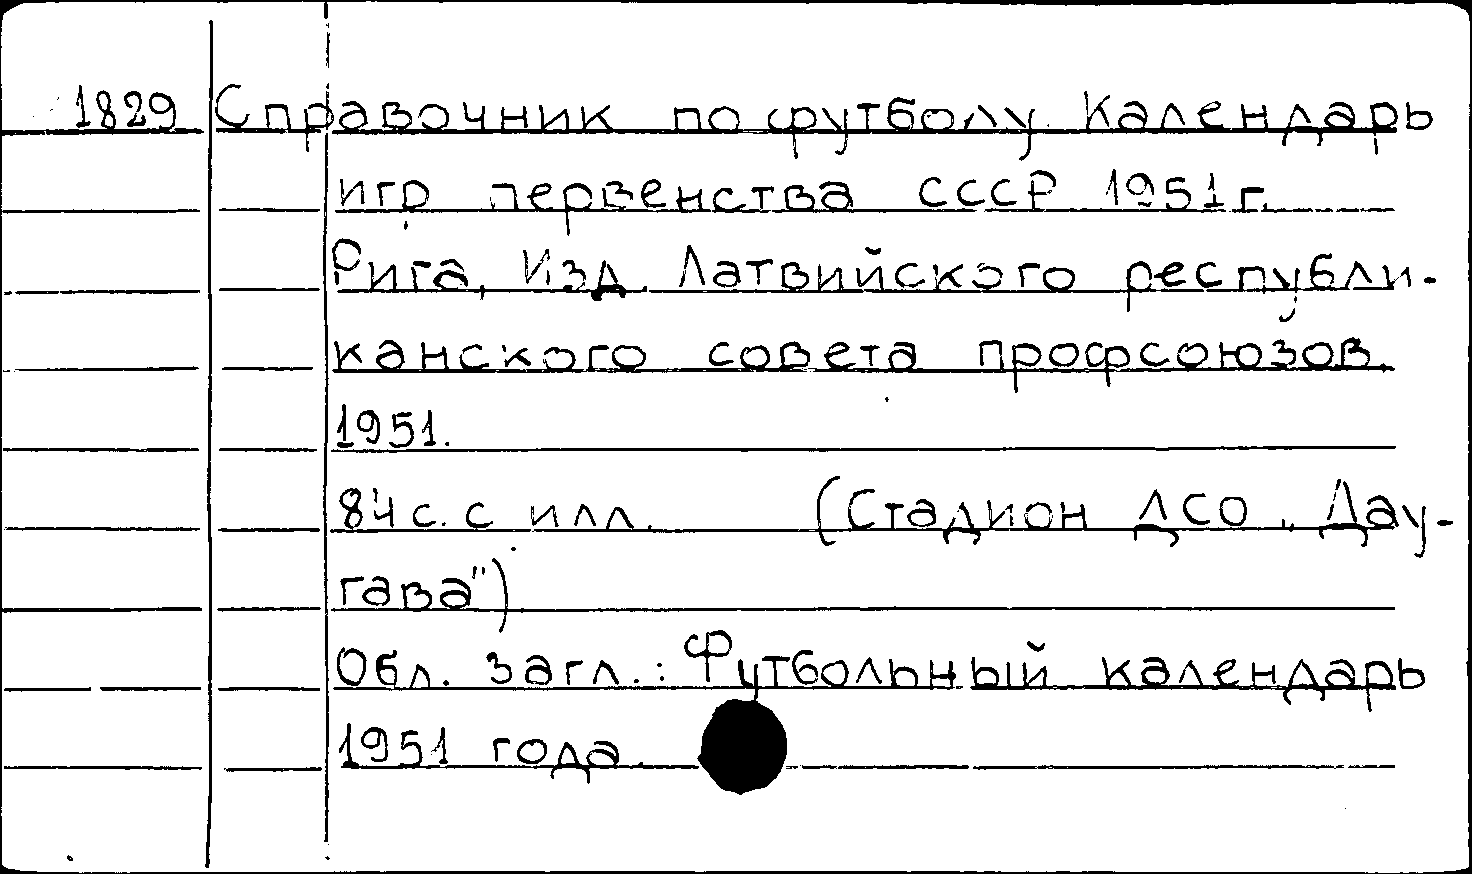 1829 Справочник по футболу. Календарь
игр первенства СССР 1951 г.
Рига, Изд. Латвийского республи-
канского совета профсоюзов.
1951.
84 с. с илл. (Стадион ДСО „Дау-
гава")
Обл. загл.: Футбольный календарь
1951 года.